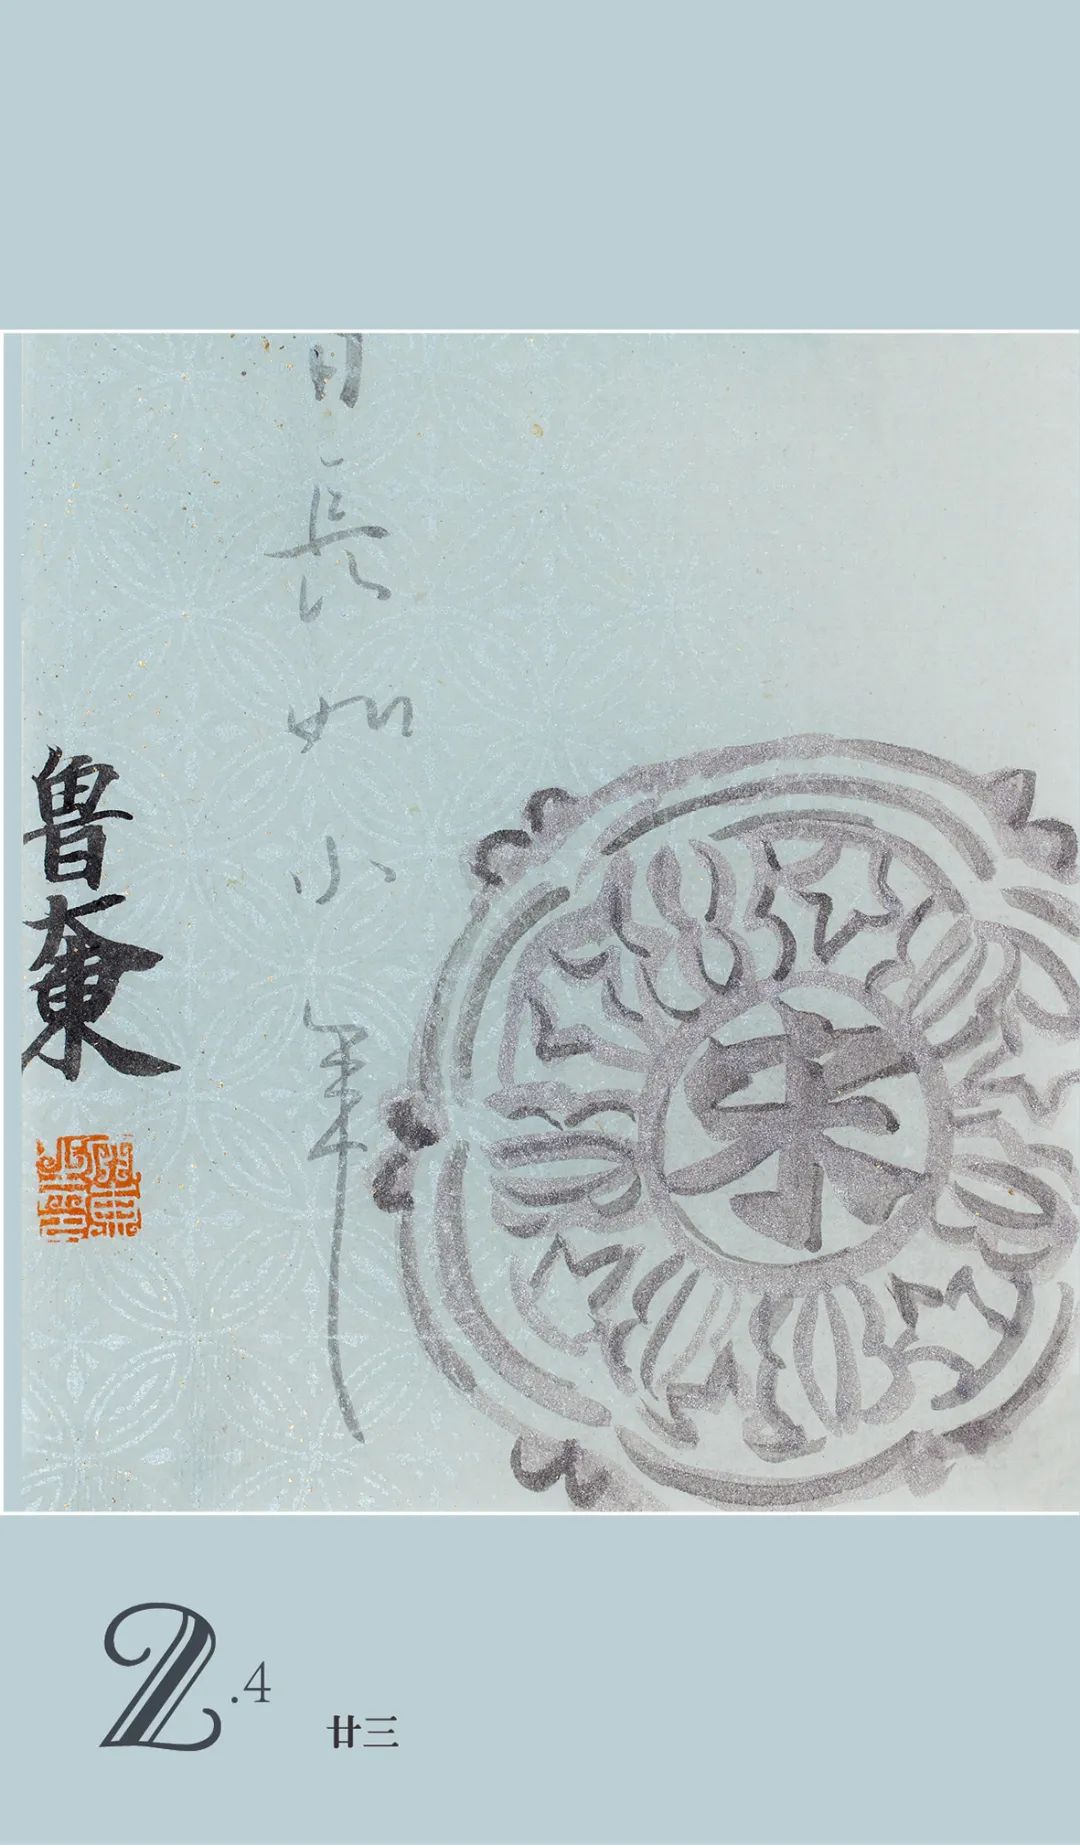 日長如小年
魯大東
2.4
廿三